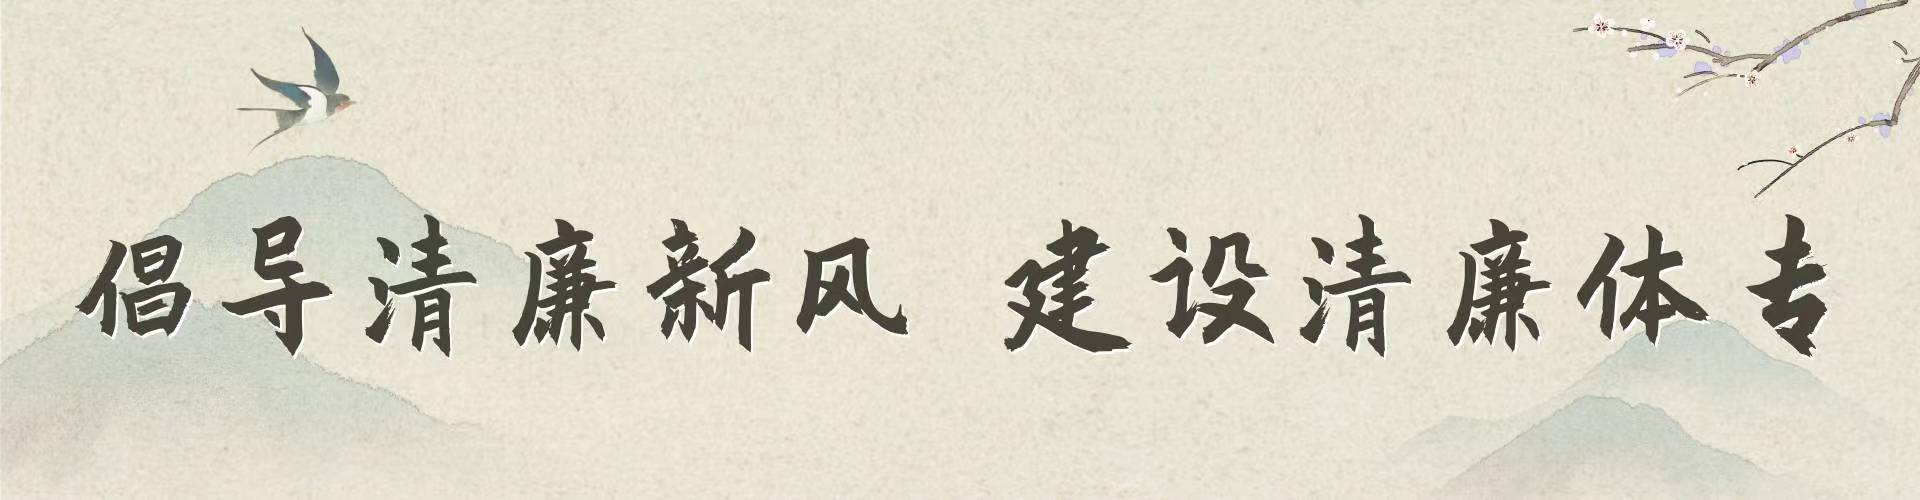 倡导清廉新风 建设清廉体专